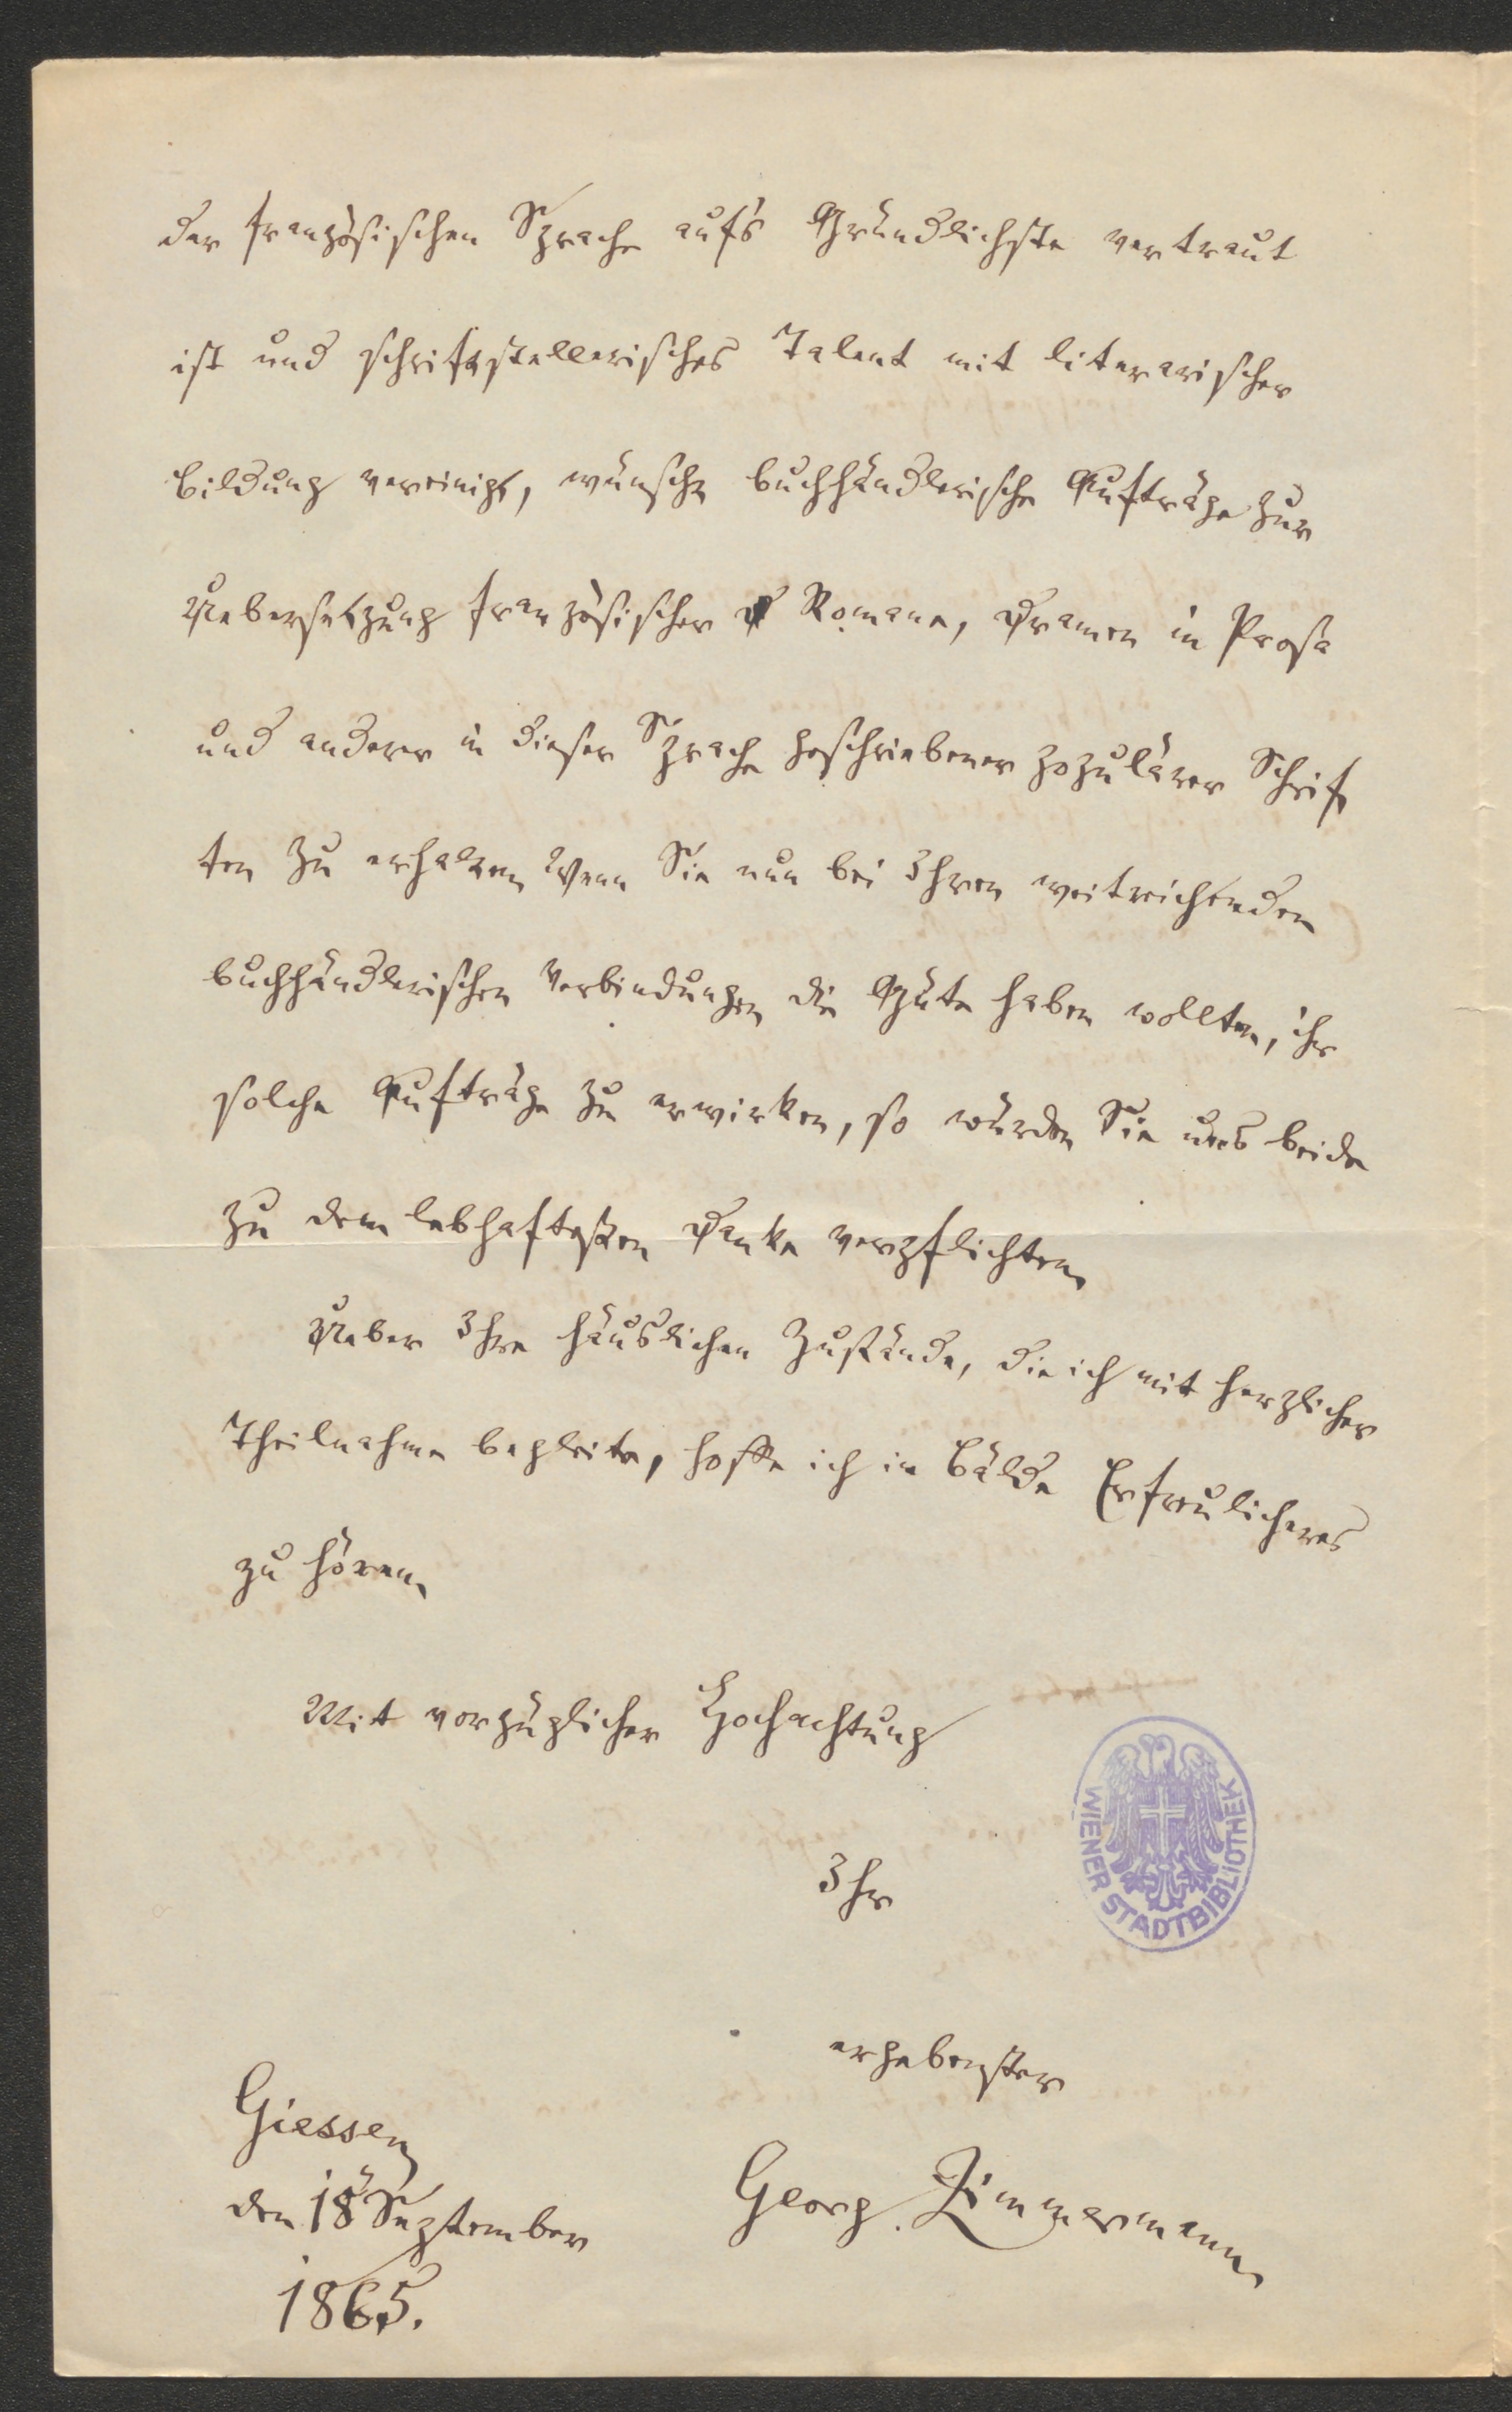 der französischen Sprache auf's Gründlichste vertraut
ist und schriftstellerisches Talent mit literarischer
Bildung vereinigt, wünscht buchhändlerische Aufträge zur
Uebersetzung französischer Romane, Dramen in Prosa
und anderer in dieser Sprache geschriebener populärer Schrif
ten zu erhalten. Wenn Sie nun bei Ihren weitreichenden
buchhändlerischen Verbindungen die Güte haben wollten, ihr
solche Aufträge zu erwirken, so würden Sie uns beide
zu dem lebhaftesten Danke verpflichten.
Ueber Ihre häuslichen Zustände, die ich mit herzlicher
Theilnahme begleite, hoffe ich in Bälde Erfreulicheres
zu hören.
Mit vorzüglicher Hochachtung
Ihr
ergebenster
Georg Zimmermann
Giessen
den 18 September
1865.
WIENER STADTBIBLIOTHEK